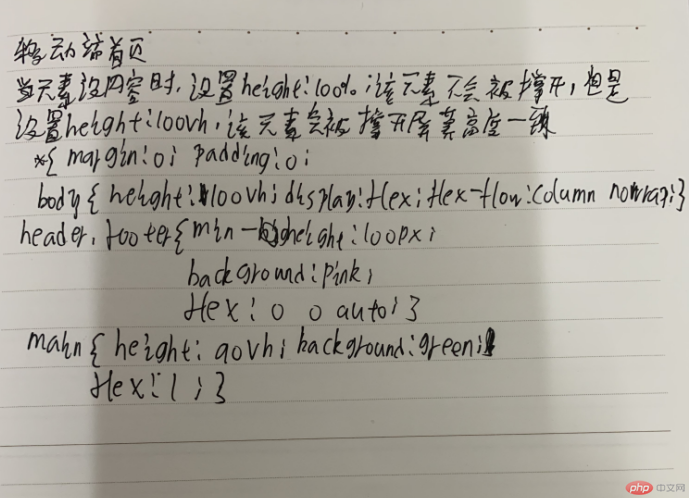 移动端首页
当元素没内容时，设置height:100%；该元素不会被撑开，但是
设置height:100vh，该元素会被撑开屏幕高度一样
*{ margin:0; padding:0;
body{ height:100vh; display:flex; flex-flow:column nowrap;}
header, footer{ min-height:100px;
background:pink;
flex: 0 0 auto; }
main { height: 90vh; background:green;
flex: 1 ; }
php 中文网